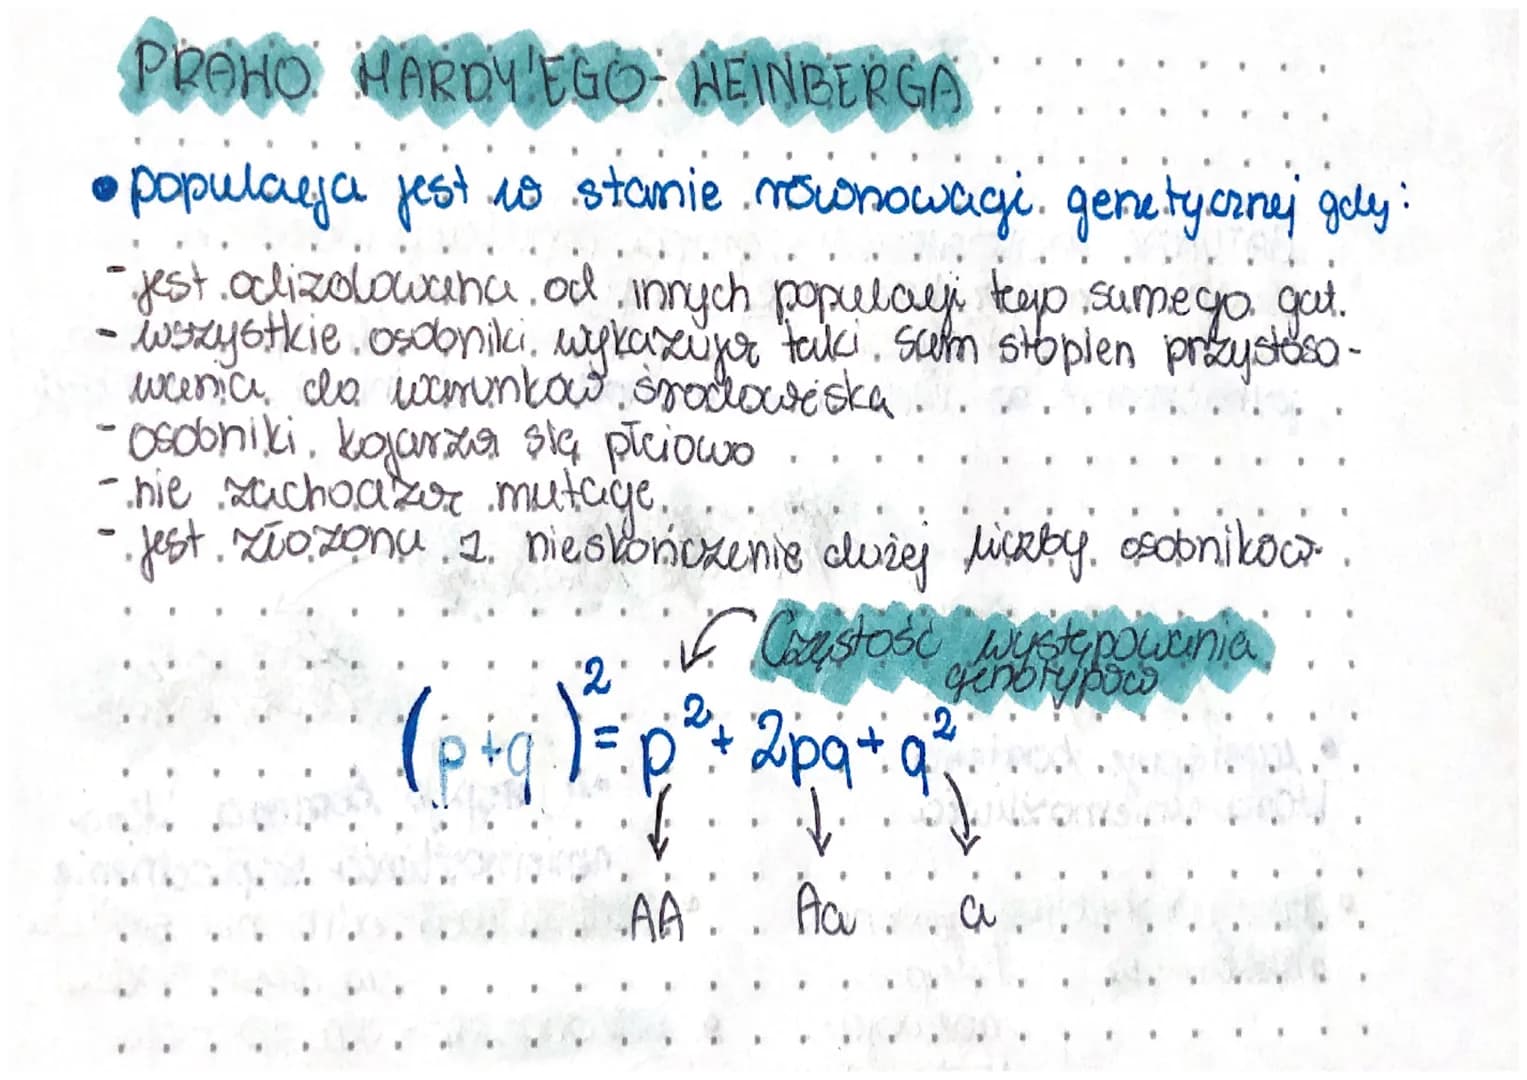 PRAWO HARDY'EGO-WEINBERGA
• populacja jest w stanie równowagi genetycznej gdy:
- jest odizolowana od innych populacji tego samego gat.
- wszystkie osobniki wykazują taki sam stopień przystoso-
wania do warunków środowiska
- osobniki kojarzą się płciowo
- nie zachodzą mutacje
- jest złożona z nieskończenie dużej liczby osobników
Częstość występowania
genotypów
(p+q)²= p²+ 2pq+ q²
AA Aa a